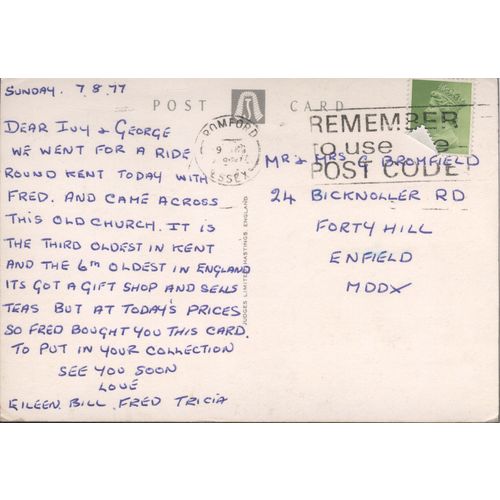 SUNDAY. 7 8 77
POST CARD
DEAR IVY & GEORGE
WE WENT FOR A RIDE
ROUND KENT TODAY WITH
FRED. AND CAME ACROSS
THIS OLD CHURCH. IT IS
THE THIRD OLDEST IN KENT
AND THE 6TH OLDEST IN ENGLAND
ITS GOT A GIFT SHOP AND SELLS
TEAS BUT AT TODAY'S PRICES
SO FRED BOUGHT YOU THIS CARD.
TO PUT IN YOUR COLLECTION
SEE YOU SOON
LOVE
EILEEN. BILL. FRED TRICIA
JUDGES LIMITED HASTINGS ENGLAND
ROMFORD
ESSEX
REMEMBER
to use
POST CODE
MR & MRS G BROMFIELD
24 BICKNOLLER RD
FORTY HILL
ENFIELD
MDDX